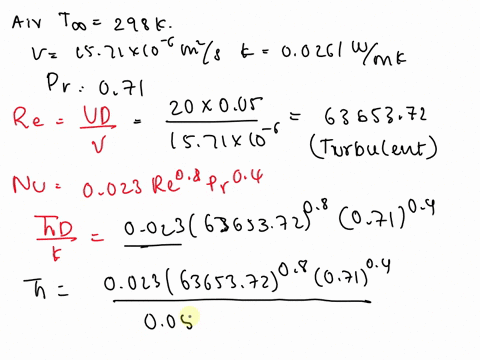 Air T∞ = 298k.
ν= 15.71×10^-6 m²/s k = 0.0261 W/mk
Pr: 0.71
Re = UD/ν = 20 × 0.05 / 15.71×10^-6 = 63653.72
(Turbulent)
Nu = 0.023 Re^0.8 Pr^0.4
h̄D/k = 0.023 (63653.72)^0.8 (0.71)^0.4
h̄ = 0.023 (63653.72)^0.8 (0.71)^0.4 / 0.05